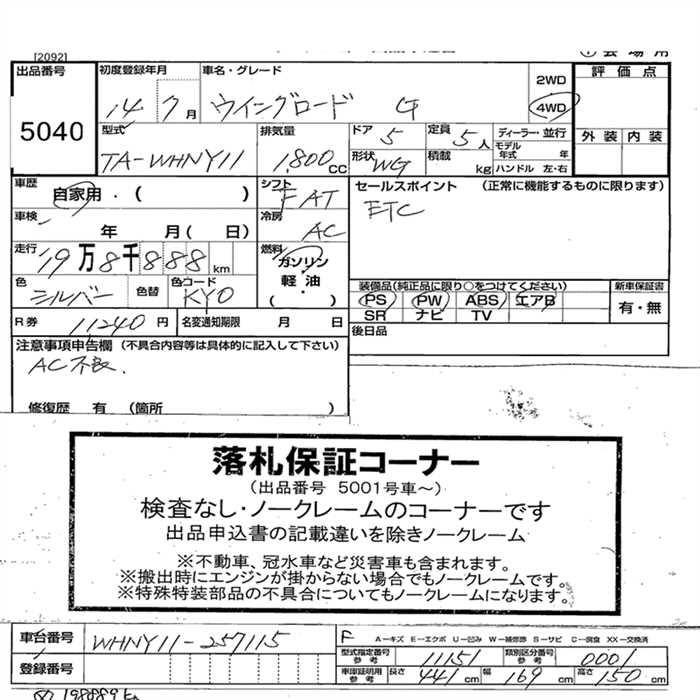 [2092]
出品番号
5040
初度登録年月
14 7月
車名・グレード
ウイングロード G
2WD
4WD
評価点
外装 内装
型式
TA-WHNY11
排気量
1,800cc
ドア
5
定員
5人
ディーラー・並行
モデル
年式 年
形状
WG
積載
kg
ハンドル 左・右
車歴
自家用・( )
シフト
FAT
セールスポイント (正常に機能するものに限ります)
ETC
車検
年 月( 日)
冷房
AC
走行
19万8千888km
燃料
ガソリン
軽油
( ・ )
色
シルバー
色替
色コード
KY0
装備品(純正品に限り○をつけてください)
PS PW ABS エアB
SR ナビ TV
新車保証書
有・無
R券
11240円
名変通知期限 月 日
後日品
注意事項申告欄 (不具合内容等は具体的に記入して下さい)
AC不良.
修復歴 有 (箇所 )
落札保証コーナー
(出品番号 5001号車～)
検査なし・ノークレームのコーナーです
出品申込書の記載違いを除きノークレーム
※不動車、冠水車など災害車も含まれます。
※搬出時にエンジンが掛からない場合でもノークレームです。
※特殊特装部品の不具合についてもノークレームになります。
車台番号
WHNY11-257115
F
A－キズ E－エクボ U－凹み W－補修跡 S－サビ C－腐食 XX－交換済
型式指定番号
参考
11151
類別区分番号
参考
0001
登録番号
車庫証明用
参考
長さ
441cm
幅
169cm
高さ
150cm
198889